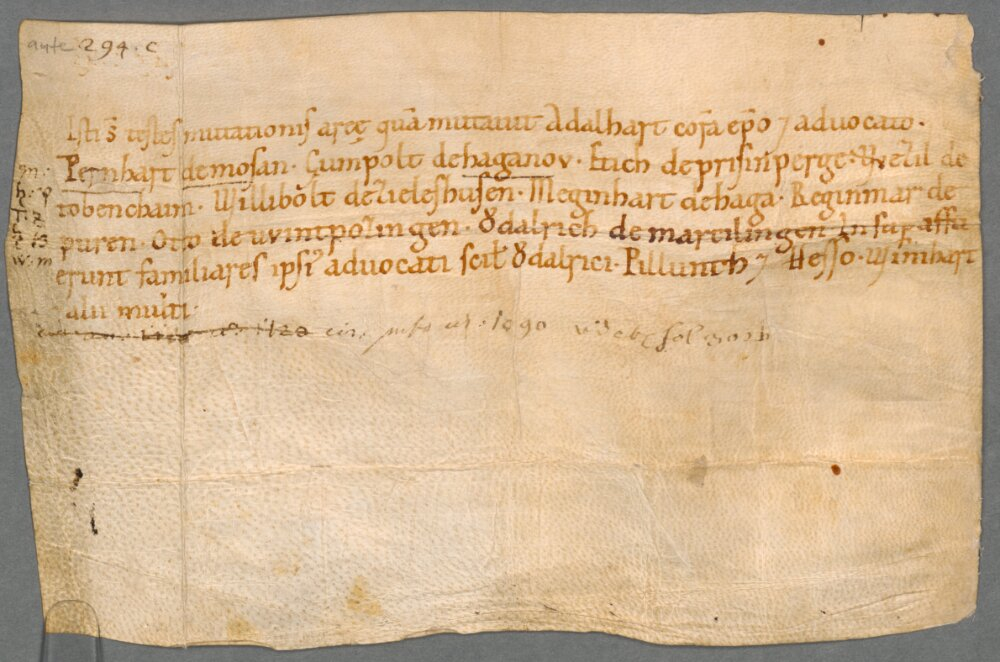 ante 294. c
Isti s̄ testes mutationis areę quā mutauit Adalhart corā ep̄o ⁊ aduocato.
Pernhart de mosan. Cumpolt de haganov. Etich de prisinperge. Wezil de
tobencheim. Willibolt de zieleshusen. Meginhart de haga. Reginmar de
puren. Otto de uvintpozingen. Ȯdalrich de martilingen. Insup affu
erunt familiares ipsi⁹ aduocati scil& Ȯdalrici. Pillunch ⁊ Hesso. Winihart
alii multi.
1090